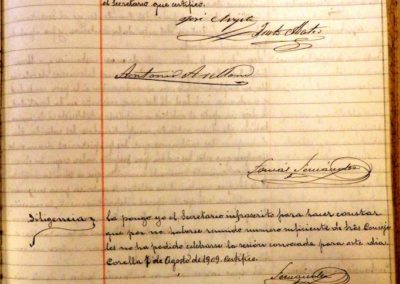 el Secretario que certifico.
José
Justo Mateo
Antonio Arellano
Tomás Fernández
Diligencia
La pongo yo el Secretario infrascrito para hacer constar
que por no haberse reunido número suficiente de Sres Conceja
les no ha podido celebrarse la sesión convocada para este dia.
Corella 7 de Agosto de 1909. Certifico.
Fernández